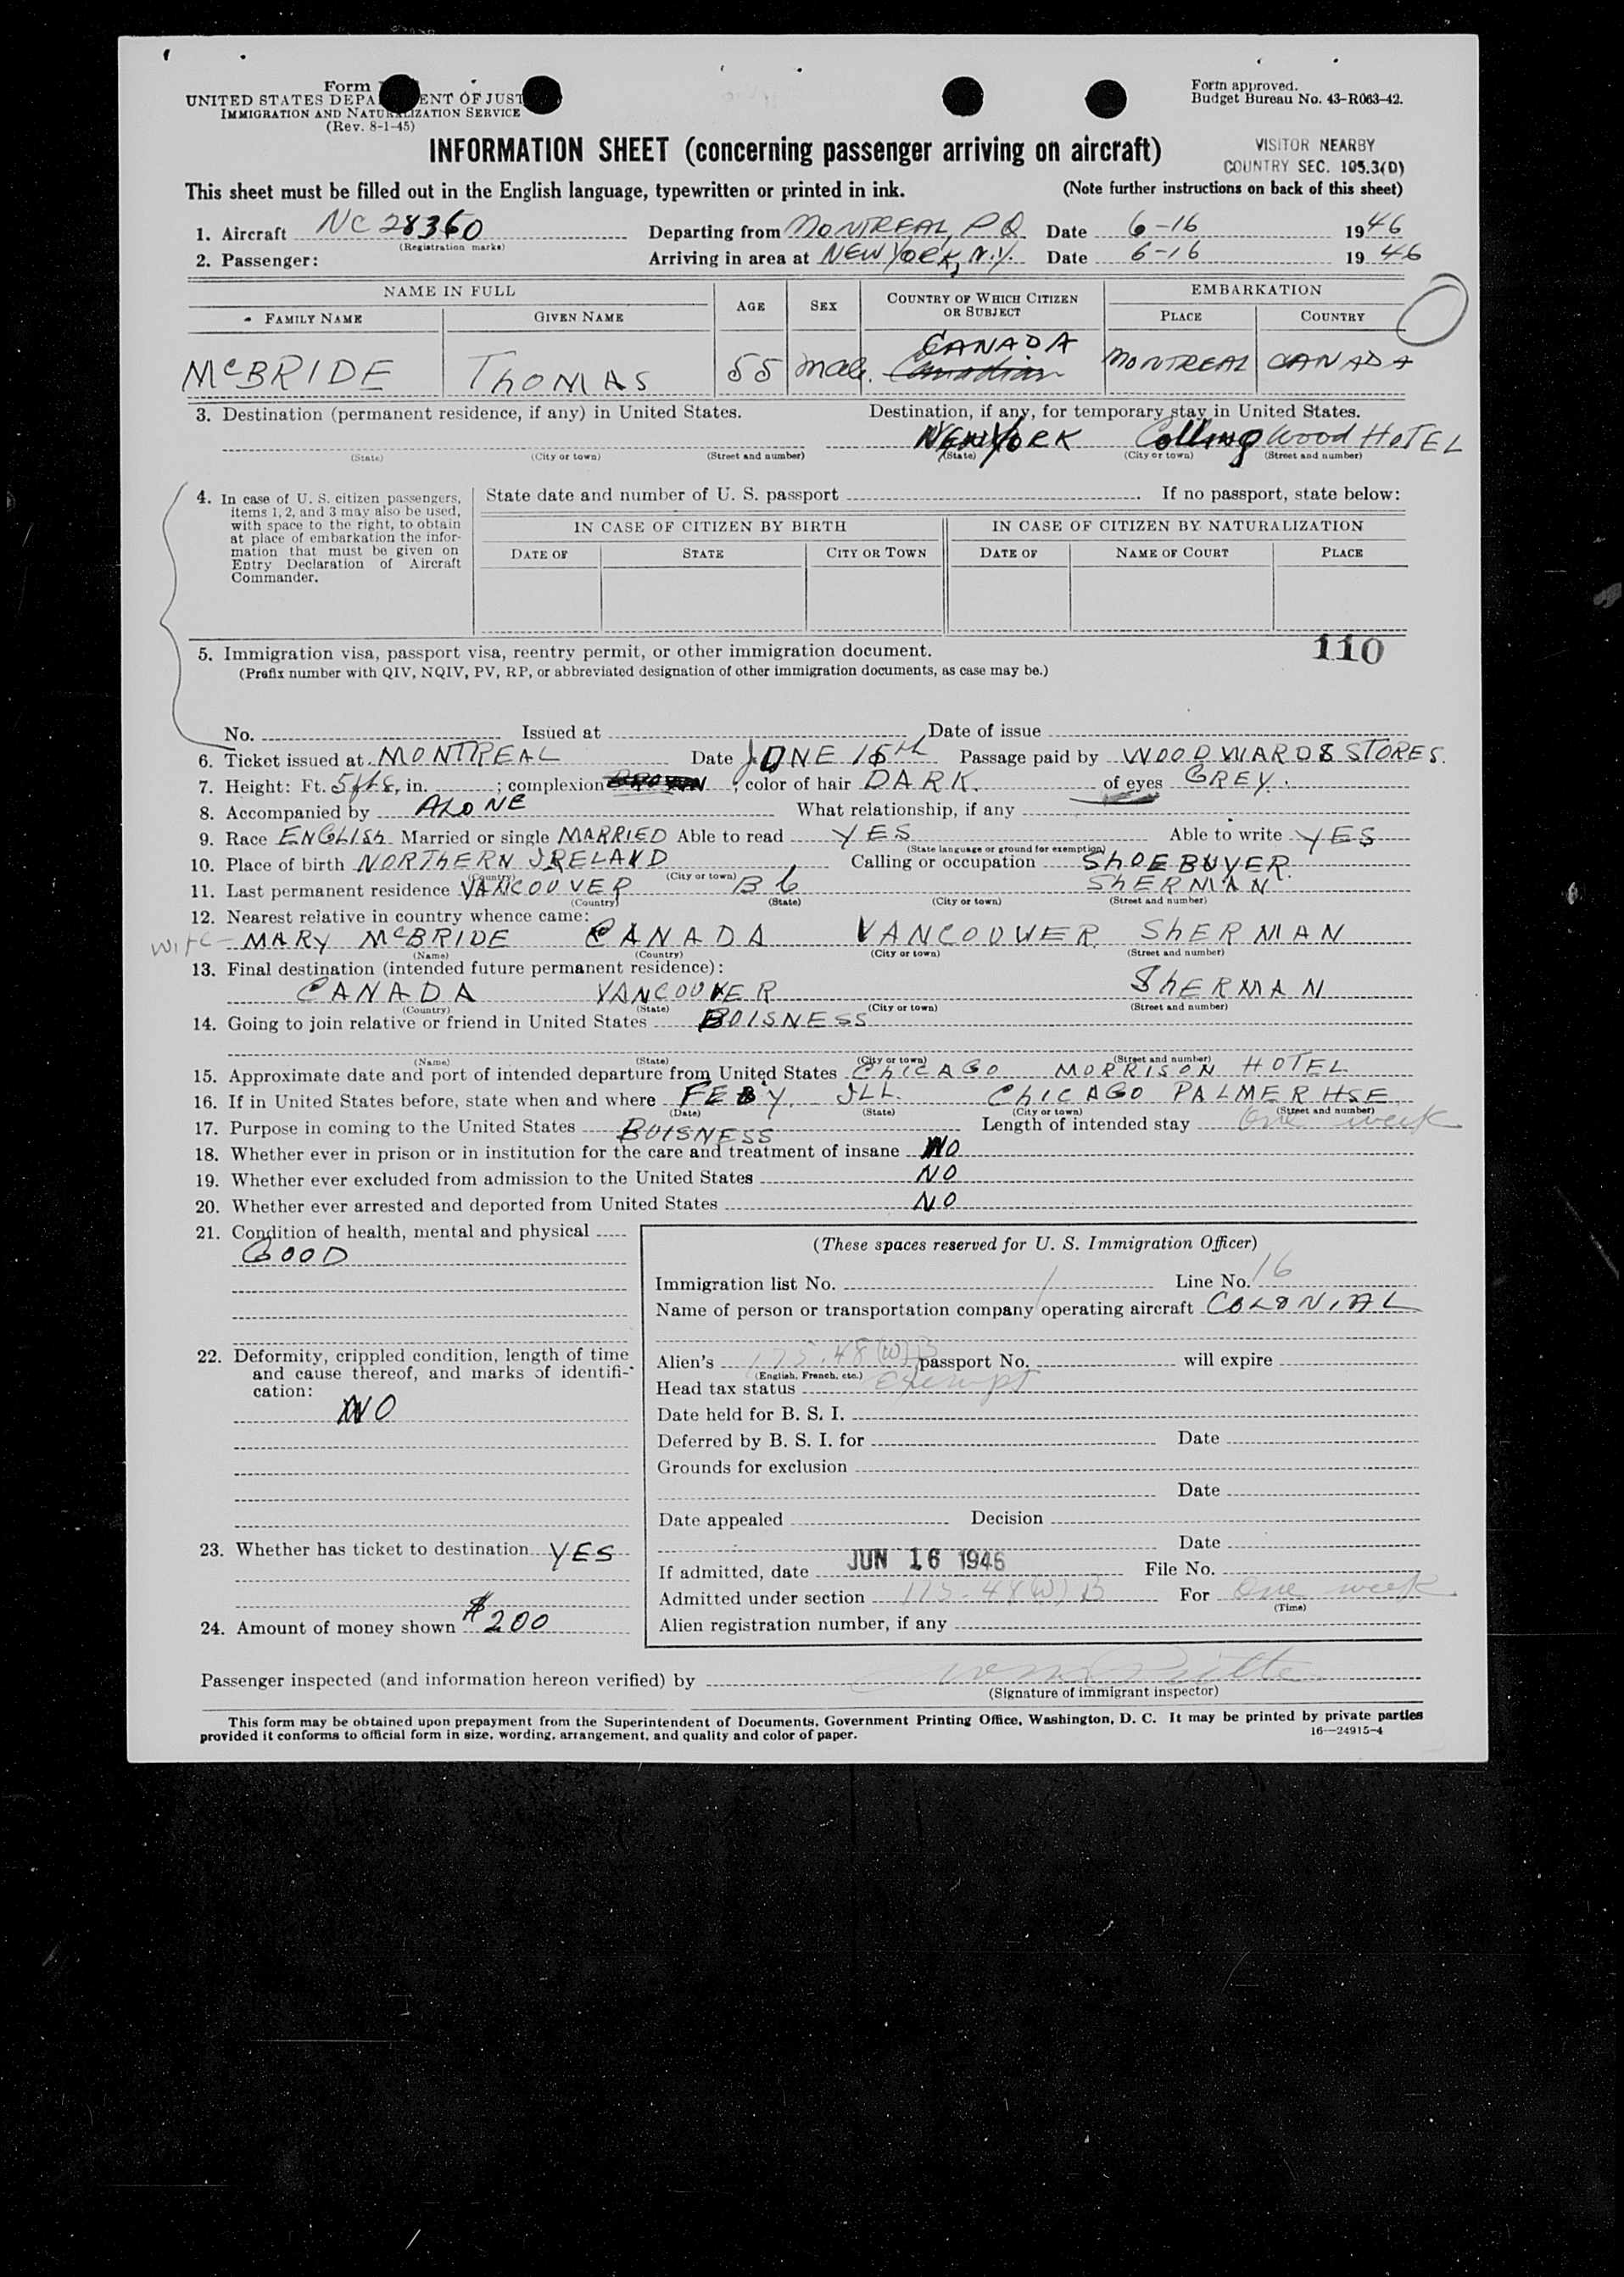 Form
UNITED STATES DEPA ENT OF JUST
IMMIGRATION AND NATURALIZATION SERVICE
(Rev. 8-1-45)
Form approved.
Budget Bureau No. 43-R063-42.
INFORMATION SHEET (concerning passenger arriving on aircraft)
VISITOR NEARBY
COUNTRY SEC. 105.3(D)
This sheet must be filled out in the English language, typewritten or printed in ink. (Note further instructions on back of this sheet)
1. Aircraft NC 28360 Departing from MONTREAL, P Q Date 6-16 1946
(Registration marks)
2. Passenger: Arriving in area at NEW YORK, N.Y. Date 6-16 1946
NAME IN FULL AGE SEX COUNTRY OF WHICH CITIZEN OR SUBJECT EMBARKATION
FAMILY NAME GIVEN NAME PLACE COUNTRY
CANADA
McBRIDE THOMAS 55 male. Canadian MONTREAL CANADA
3. Destination (permanent residence, if any) in United States. Destination, if any, for temporary stay in United States.
NEW YORK Collingwood HOTEL
(State) (City or town) (Street and number) (State) (City or town) (Street and number)
4. In case of U. S. citizen passengers, items 1, 2, and 3 may also be used, with space to the right, to obtain at place of embarkation the information that must be given on Entry Declaration of Aircraft Commander.
State date and number of U. S. passport . If no passport, state below:
IN CASE OF CITIZEN BY BIRTH IN CASE OF CITIZEN BY NATURALIZATION
DATE OF STATE CITY OR TOWN DATE OF NAME OF COURT PLACE
110
5. Immigration visa, passport visa, reentry permit, or other immigration document.
(Prefix number with QIV, NQIV, PV, RP, or abbreviated designation of other immigration documents, as case may be.)
No. Issued at Date of issue
6. Ticket issued at MONTREAL Date JUNE 15th Passage paid by WOODWARDS STORES.
7. Height: Ft. 5ft 8, in. ; complexion BROWN ; color of hair DARK. of eyes GREY.
8. Accompanied by ALONE What relationship, if any
9. Race ENGLISh Married or single MARRIED Able to read YES Able to write YES
(State language or ground for exemption)
10. Place of birth NORThERN IRELAND Calling or occupation ShOE BUYER.
(Country) (City or town)
11. Last permanent residence VANCOUVER B C ShERMAN
(Country) (State) (City or town) (Street and number)
12. Nearest relative in country whence came:
wife - MARY McBRIDE CANADA VANCOUVER ShERMAN
(Name) (Country) (City or town) (Street and number)
13. Final destination (intended future permanent residence):
CANADA VANCOUVER ShERMAN
(Country) (State) (City or town) (Street and number)
14. Going to join relative or friend in United States BUISNESS
(Name) (State) (City or town) (Street and number)
15. Approximate date and port of intended departure from United States ChICAGO MORRISON HOTEL
16. If in United States before, state when and where FEBY. ILL. ChICAGO PALMER HSE
(Date) (State) (City or town) (Street and number)
17. Purpose in coming to the United States BUISNESS Length of intended stay One week
18. Whether ever in prison or in institution for the care and treatment of insane NO
19. Whether ever excluded from admission to the United States NO
20. Whether ever arrested and deported from United States NO
21. Condition of health, mental and physical
GOOD
22. Deformity, crippled condition, length of time and cause thereof, and marks of identification:
NO
23. Whether has ticket to destination YES
24. Amount of money shown $200
(These spaces reserved for U. S. Immigration Officer)
Immigration list No. 1 Line No. 16
Name of person or transportation company operating aircraft COLONIAL
Alien's 175.48(W)B passport No. will expire
(English, French, etc.)
Head tax status Exempt
Date held for B. S. I.
Deferred by B. S. I. for Date
Grounds for exclusion
Date
Date appealed Decision
Date
If admitted, date JUN 16 1946 File No.
Admitted under section 175.48(W)B For One week
(Time)
Alien registration number, if any
Passenger inspected (and information hereon verified) by
(Signature of immigrant inspector)
This form may be obtained upon prepayment from the Superintendent of Documents, Government Printing Office, Washington, D. C. It may be printed by private parties
provided it conforms to official form in size, wording, arrangement, and quality and color of paper. 16—24915-4